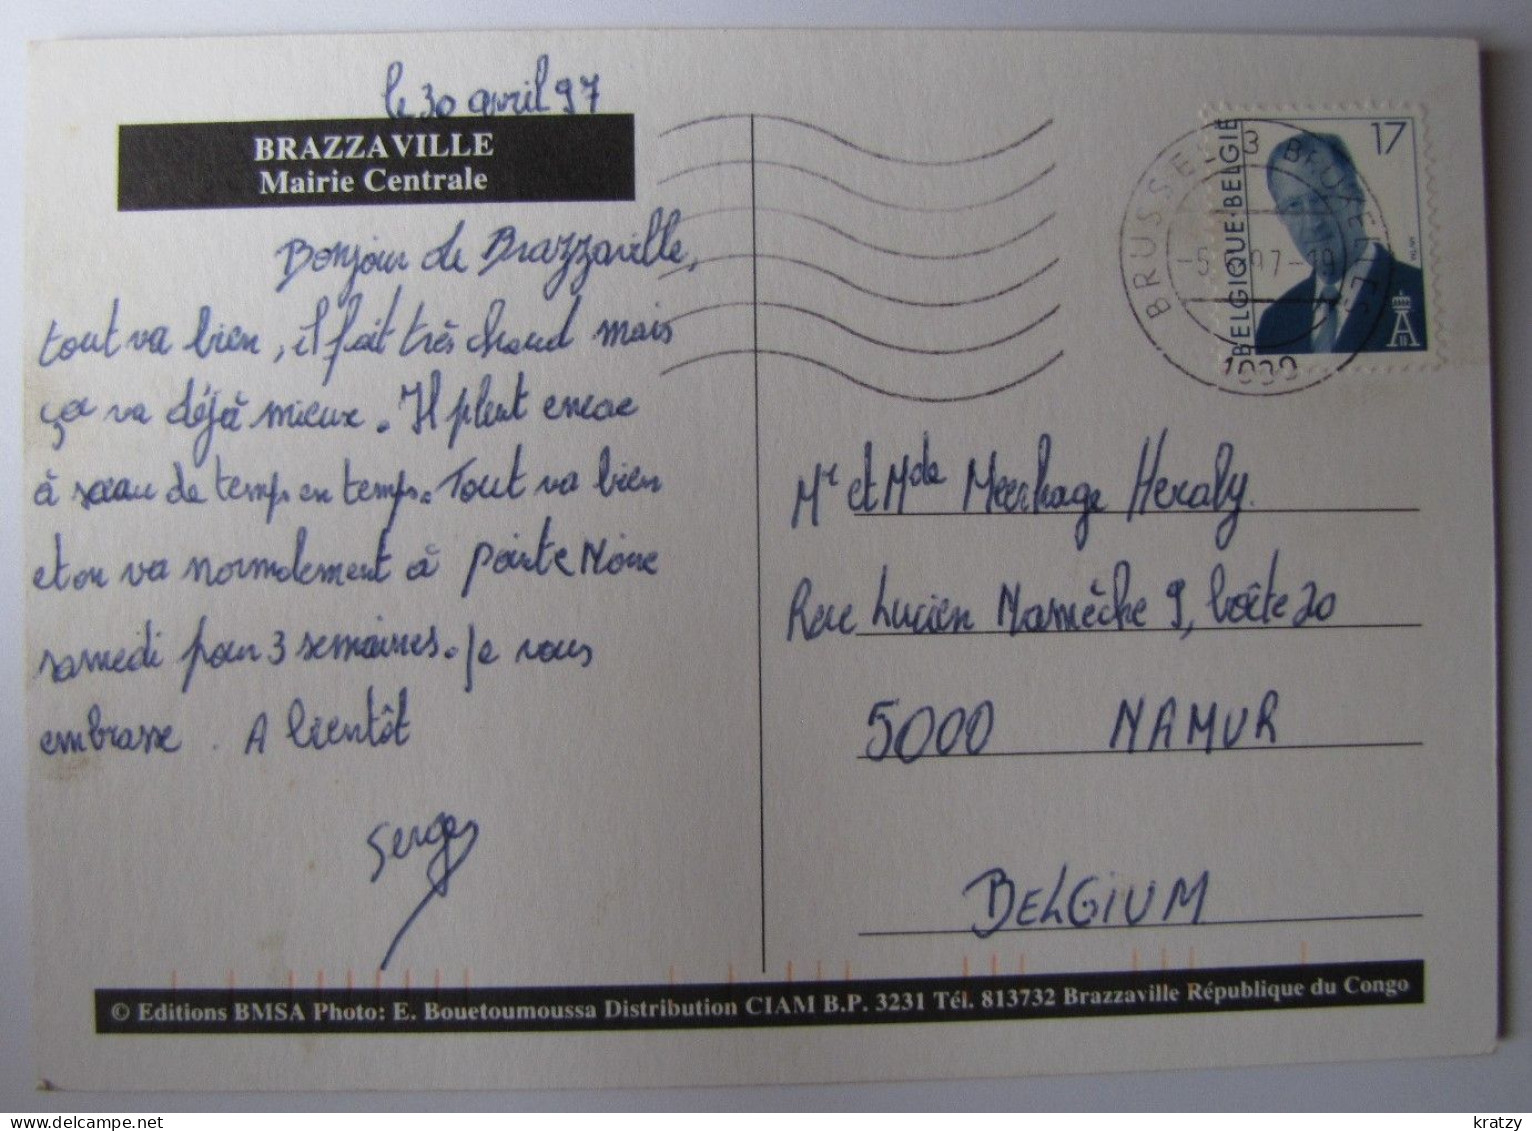 le 30 avril 97
BRAZZAVILLE
Mairie Centrale
Bonjour de Brazzaville,
tout va bien, il fait très chaud mais
ça va déjà mieux. Il pleut encore
à seau de temps en temps. Tout va bien
et on va normalement à Pointe Noire
samedi pour 3 semaines. Je vous
embrasse. A bientôt
Serge
BELGIQUE·BELGIE
17
BRUSSEL BRUXELLES
1000
Mr et Mde Meerhage Heraly.
Rue Lucien Namèche 9, boîte 20
5000 NAMUR
BELGIUM
© Editions BMSA Photo: E. Bouetoumoussa Distribution CIAM B.P. 3231 Tél. 813732 Brazzaville République du Congo
delcampe.net
kratzy